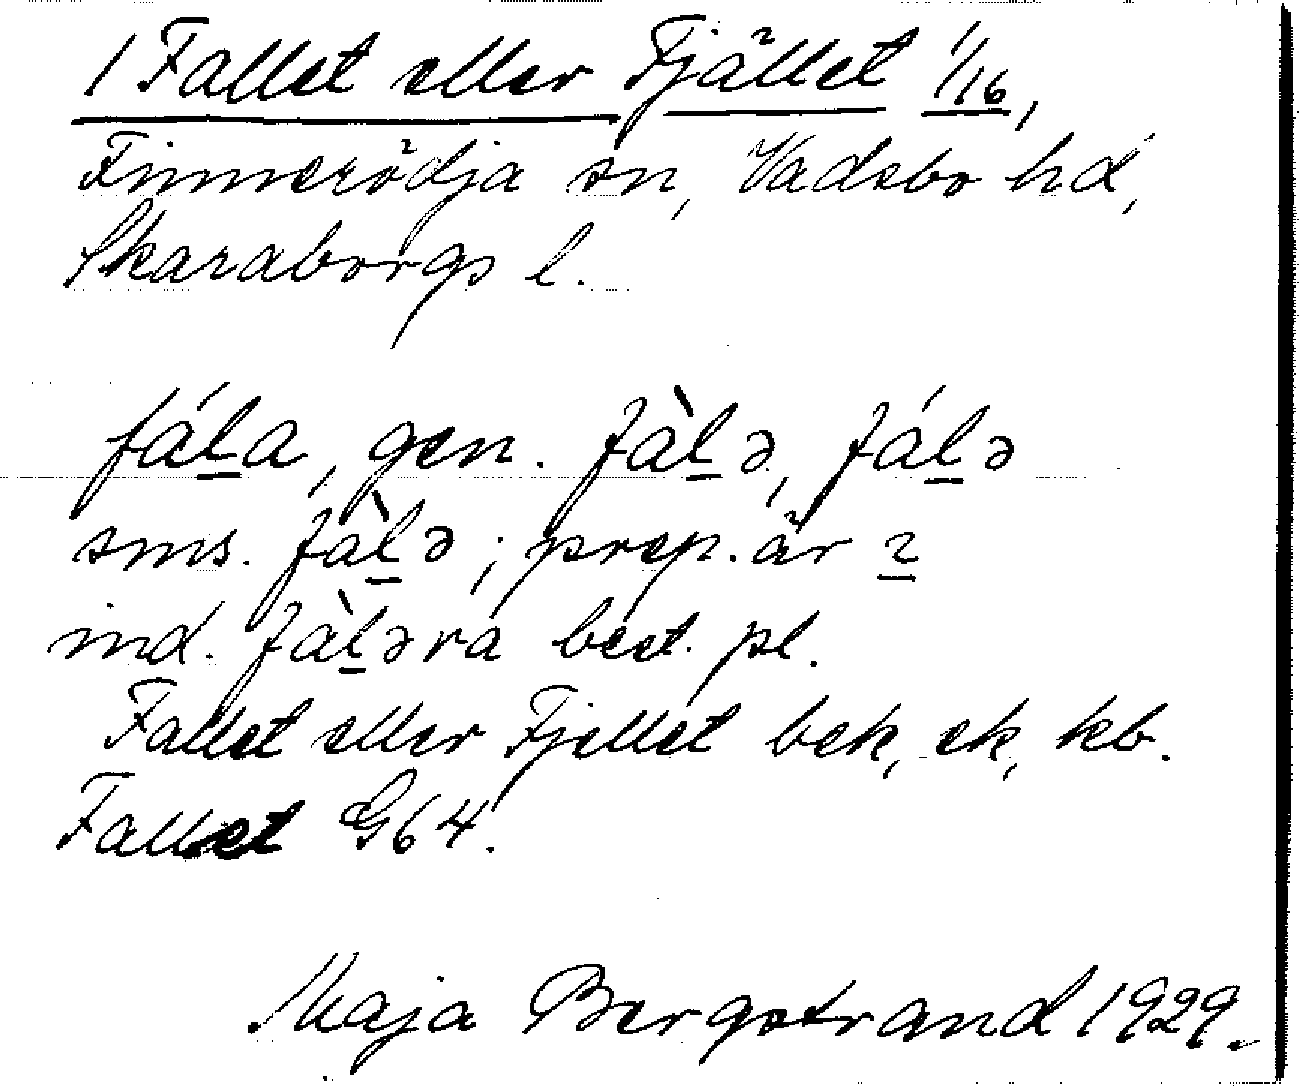 1 Fallet eller Fjället 1/16,
Finnerödja sn, Vadsbo hd,
Skaraborgs l.
fáḻa, gen. fàḻə, fáḻə
sms. fàḻə ; prep. är ı
ind. fàḻəra best. pl.
Fallet eller Fjellet bek, ek, kb.
Fallet G64.
Maja Bergstrand 1929.